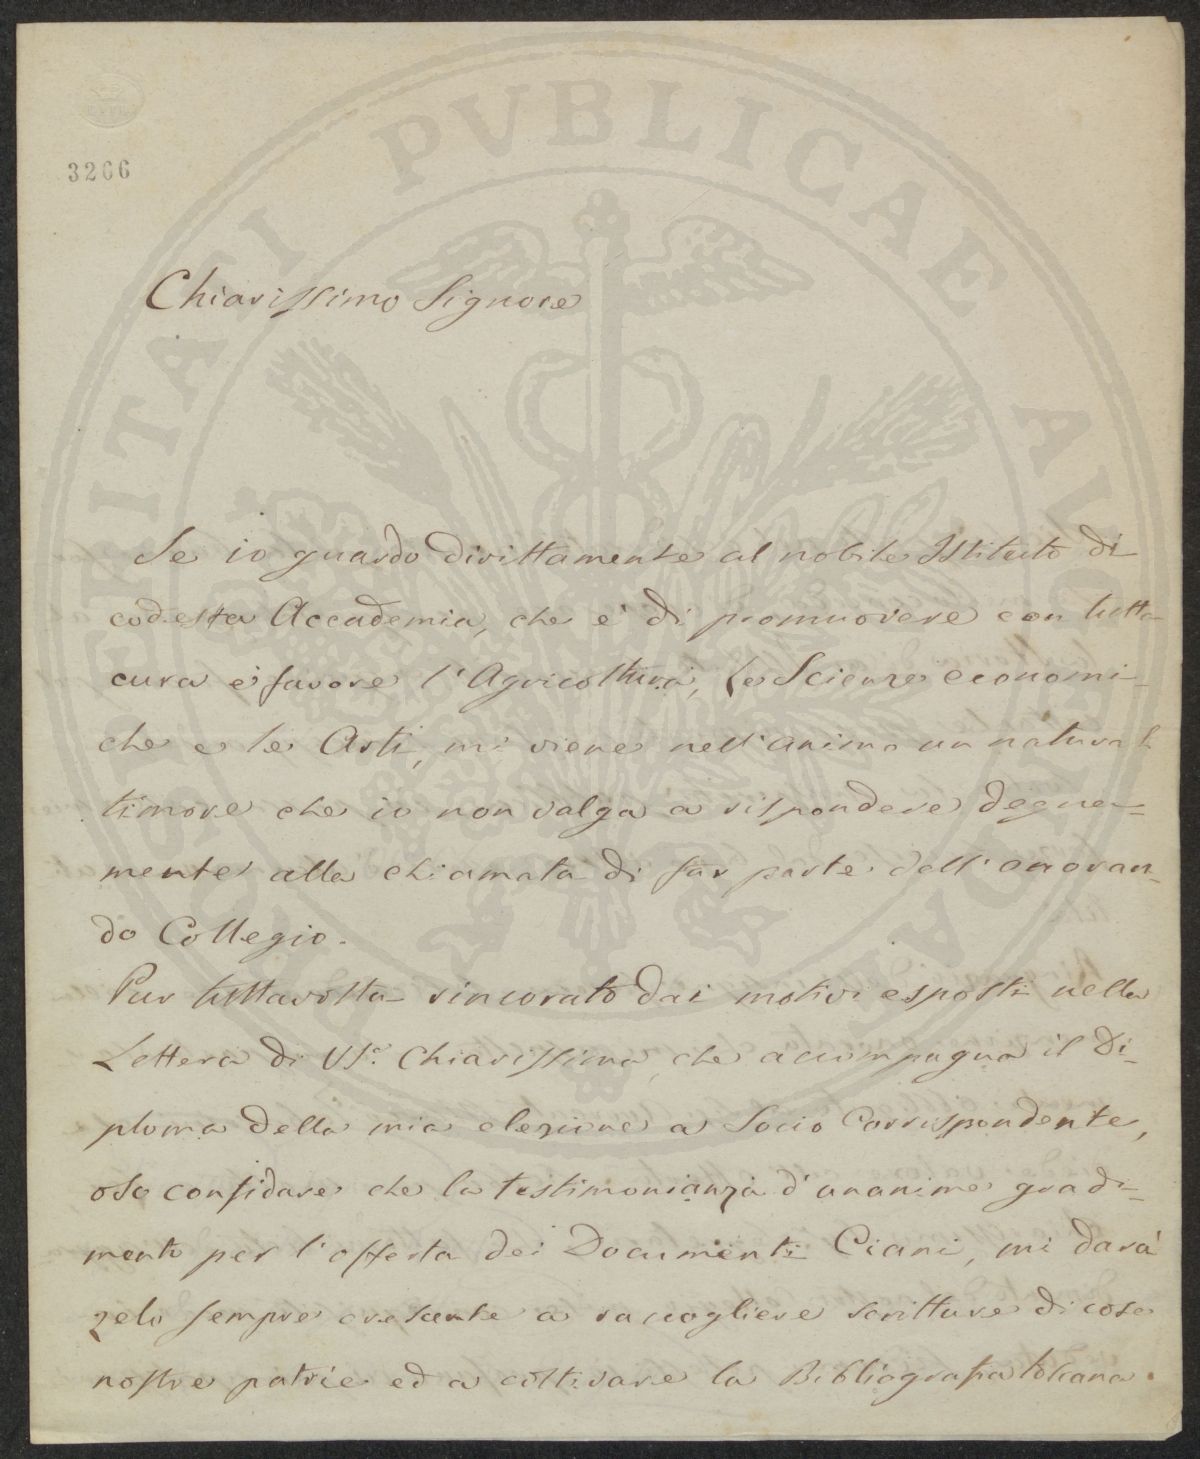 3266
Chiarissimo Signore
Se io guardo dirittamente al nobile Istituto di
codesta Accademia, che è di promuovere con tutta
cura e favore l'Agricoltura, le Scienze economi-
che e le Arti, mi viene nell'animo un natural
timore che io non valga a rispondere degna-
mente alla chiamata di far parte dell'onoran-
do Collegio.
Pur tuttavolta rincorato dai motivi esposti nella
Lettera di VS.a Chiarissima, che accompagna il Di-
ploma della mia elezione a Socio Corrispondente,
oso confidare che la testimonianza d'unanime gradi-
mento per l'offerta dei Documenti Ciani, mi darà
zelo sempre crescente a raccogliere scritture di cose
nostre patrie ed a coltivare la Bibliografia toscana.